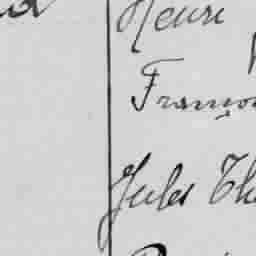 Henri
Franço
Jules Th